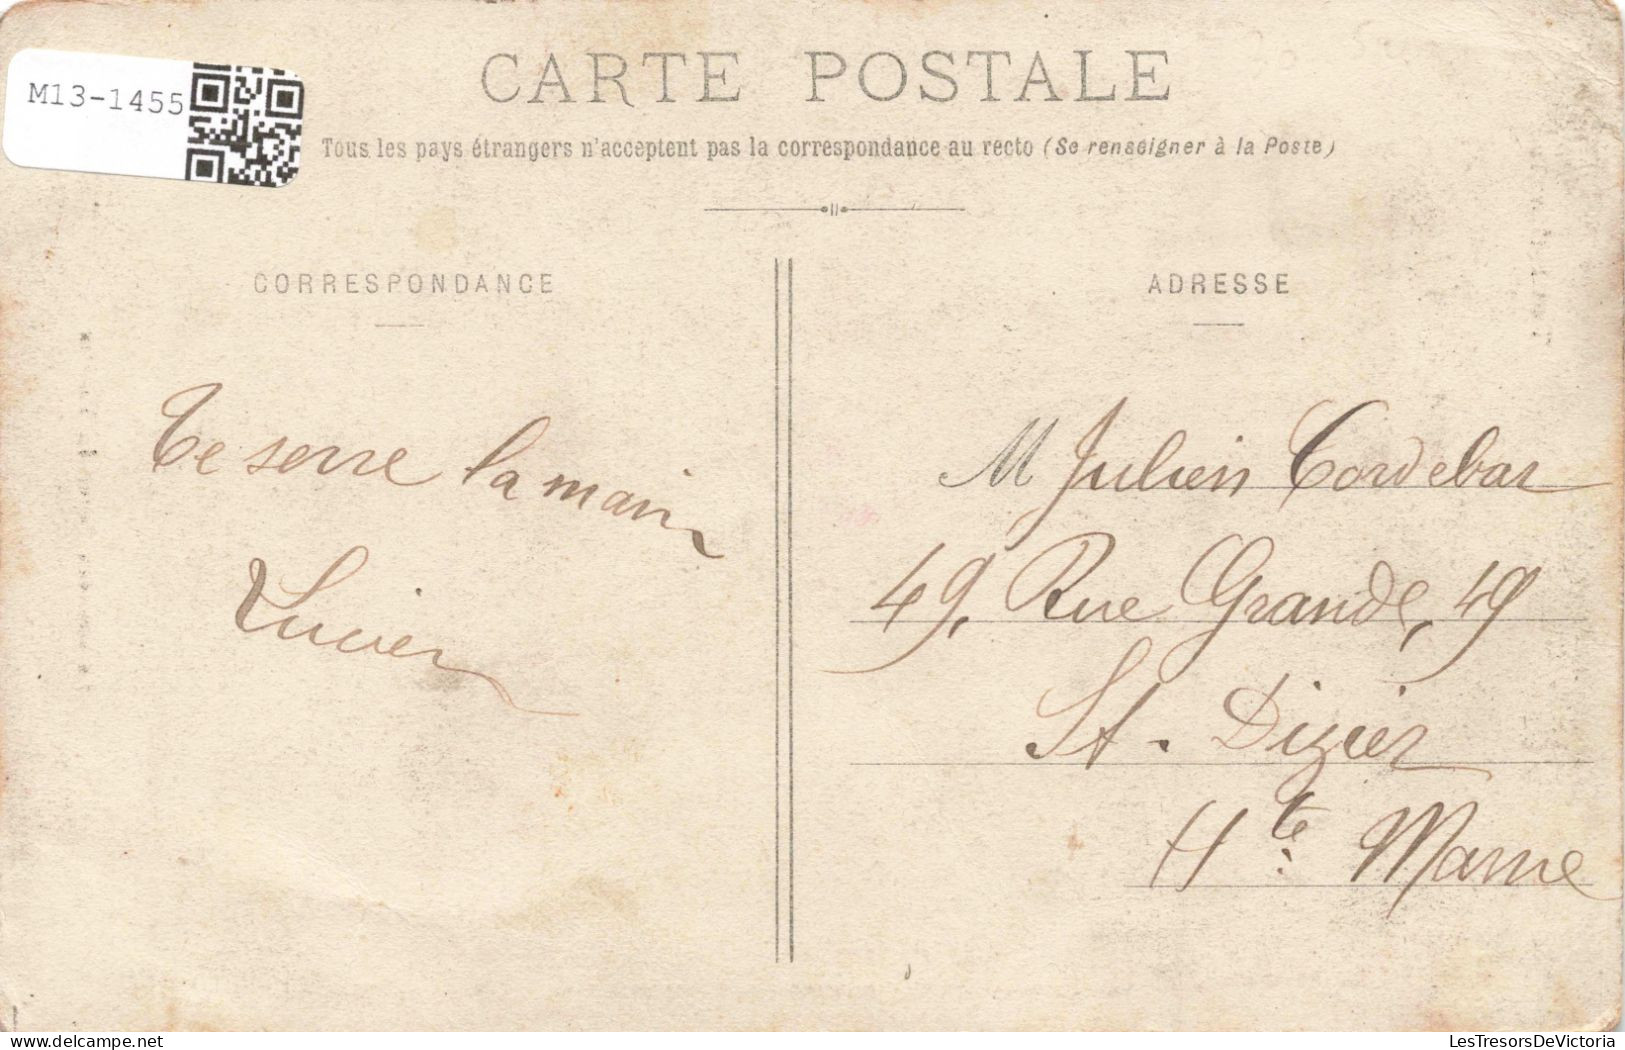 M13-1455
CARTE POSTALE
Tous les pays étrangers n'acceptent pas la correspondance au recto (Se renseigner à la Poste)
CORRESPONDANCE
ADRESSE
Te serre la main
Lucien
M Julien Cordebar
49, Rue Grande, 49
St. Dizier
Hte Marne
LesTresorsDeVictoria